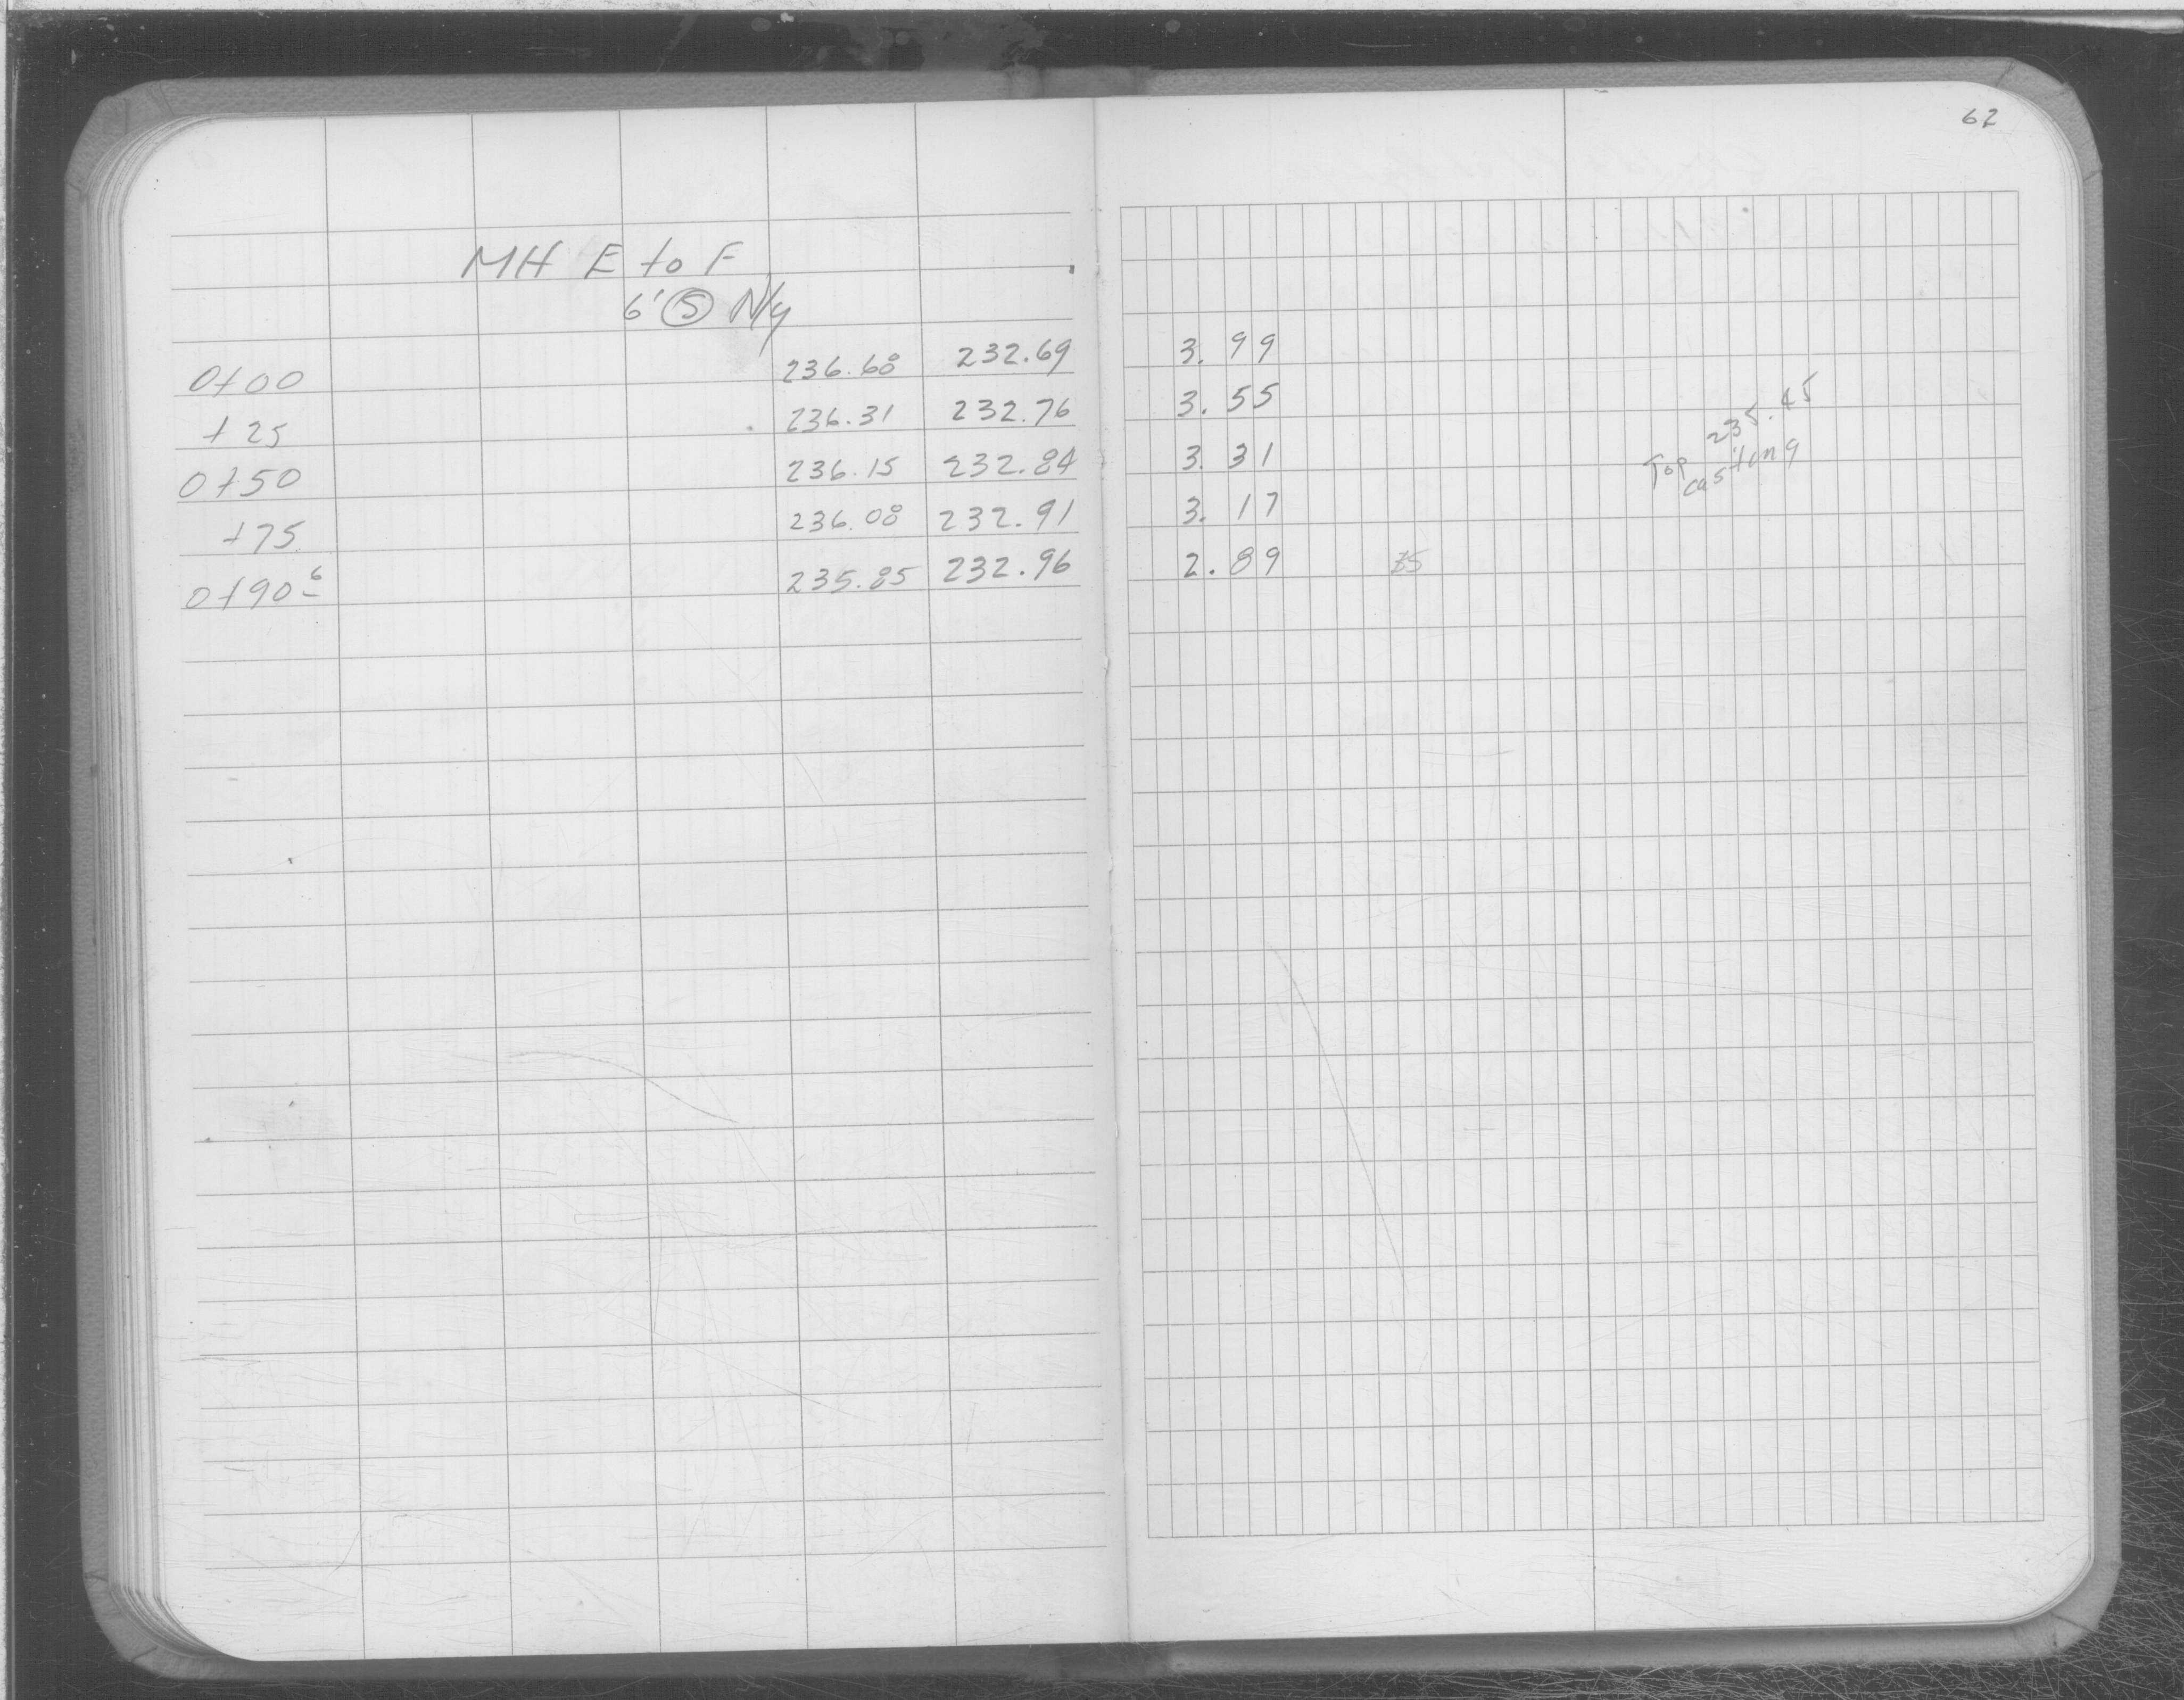 62
MH E to F
6' Ⓢ N'ly
0+00 236.68 232.69 3.99
+25 236.31 232.76 3.55
0+50 236.15 232.84 3.31
+75 236.08 232.91 3.17
0+90⁶ 235.85 232.96 2.89
235.45
Top casting